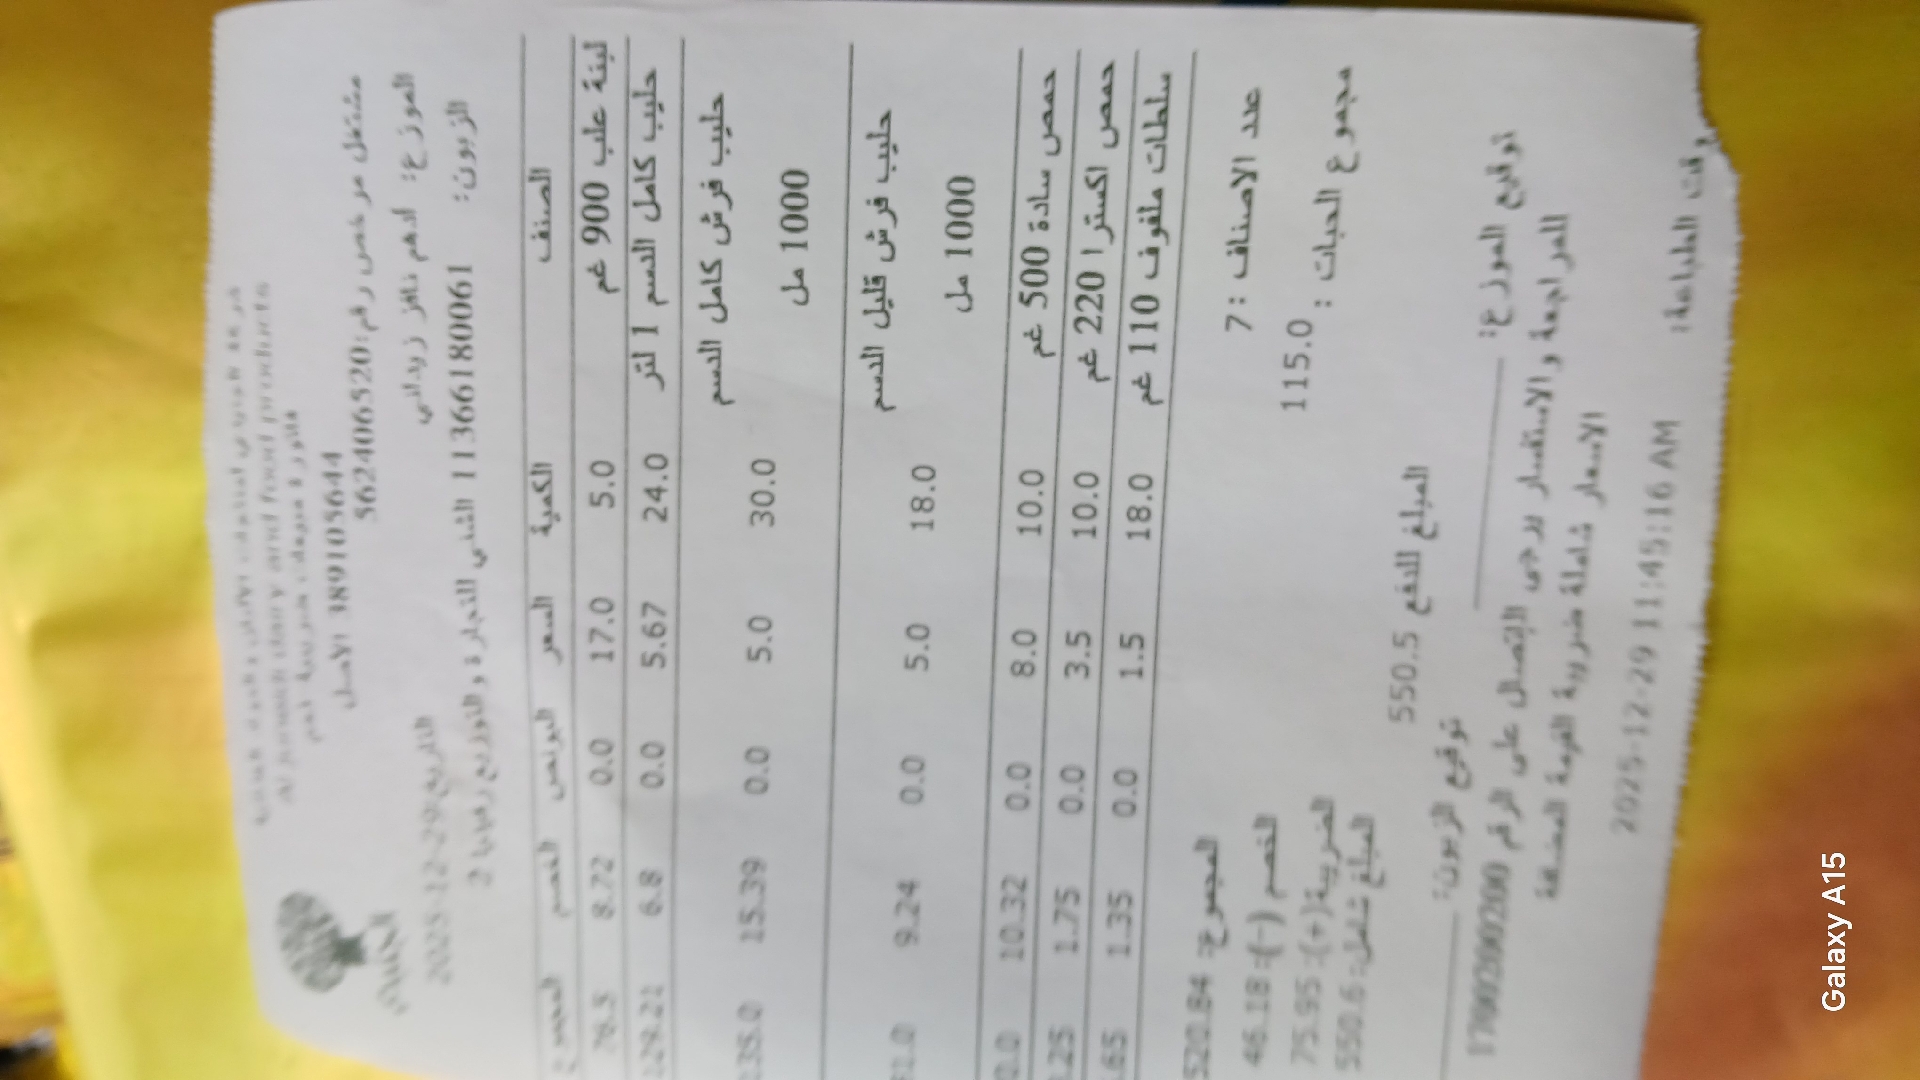 Al Juneidi dairy and food products
389105644 الاصل
مشتغل مرخص رقم: 562406520
الموزع: ادهم نافز زيداني
التاريخ: 2025-12-29
الزبون: 11366180061 الثنى للتجارة والتوزيع رفيديا 2
الصنف الكمية السعر البونص الخصم المجموع
لبنة علب 900 غم 5.0 17.0 0.0 8.72
حليب كامل الدسم 1 لتر 24.0 5.67 0.0 6.8 129.21
حليب فرش كامل الدسم 1000 مل 30.0 5.0 0.0 15.39 135.0
حليب فرش قليل الدسم 1000 مل 18.0 5.0 0.0 9.24
حمص سادة 500 غم 10.0 8.0 0.0 10.32
حمص اكسترا 220 غم 10.0 3.5 0.0 1.75
سلطات ملفوف 110 غم 18.0 1.5 0.0 1.35
المجموع: 520.84
عدد الاصناف : 7
الخصم (-): 46.18
مجموع الحبات : 115.0
الضريبة(+): 75.95
المبلغ شامل: 550.6
المبلغ للدفع 550.5
توقيع الموزع:
توقيع الزبون:
للمراجعة والاستفسار يرجى الاتصال على الرقم 1700200200
الاسعار شاملة ضريبة القيمة المضافة
وقت الطباعة: 2025-12-29 11:45:16 AM
Galaxy A15